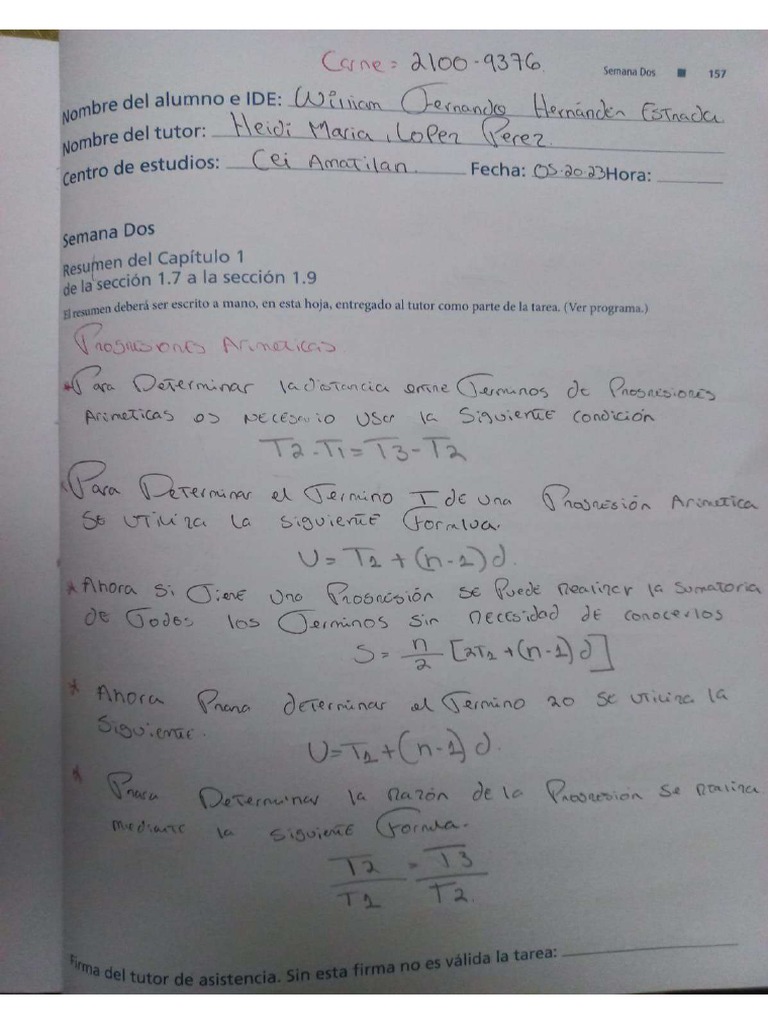 Carne = 2100-9376
Semana Dos ■ 157
Nombre del alumno e IDE: William Fernando Hernánden Estrada
Nombre del tutor: Heidi Maria Lopez Perez
Centro de estudios: Cei Amatilan Fecha: 05.20.23 Hora:
Semana Dos
Resumen del Capítulo 1
de la sección 1.7 a la sección 1.9
El resumen deberá ser escrito a mano, en esta hoja, entregado al tutor como parte de la tarea. (Ver programa.)
Progresiones Arimeticas
* Para Determinar la distancia entre Terminos de Progresiones
Arimeticas es necesario user la siguiente condición
T2 - T1 = T3 - T2
* Para Determinar el Termino I de una Progresión Arimetica
se utiliza la siguiente Formlua.
U = T1 + (n-1) d.
* Ahora si Tiene una Progresión se Puede realizer la sumatoria
de Todos los Terminos sin necesidad de conocerlos
S = n/2 [2T1 + (n-1) d]
* Ahora Prara determinar el Termino 20 se utiliza la
siguiente.
U = T1 + (n-1) d.
* Prara Determinar la razón de la Progresion se realiza
mediante la siguiente Formula.
T2/T1 = T3/T2.
Firma del tutor de asistencia. Sin esta firma no es válida la tarea: